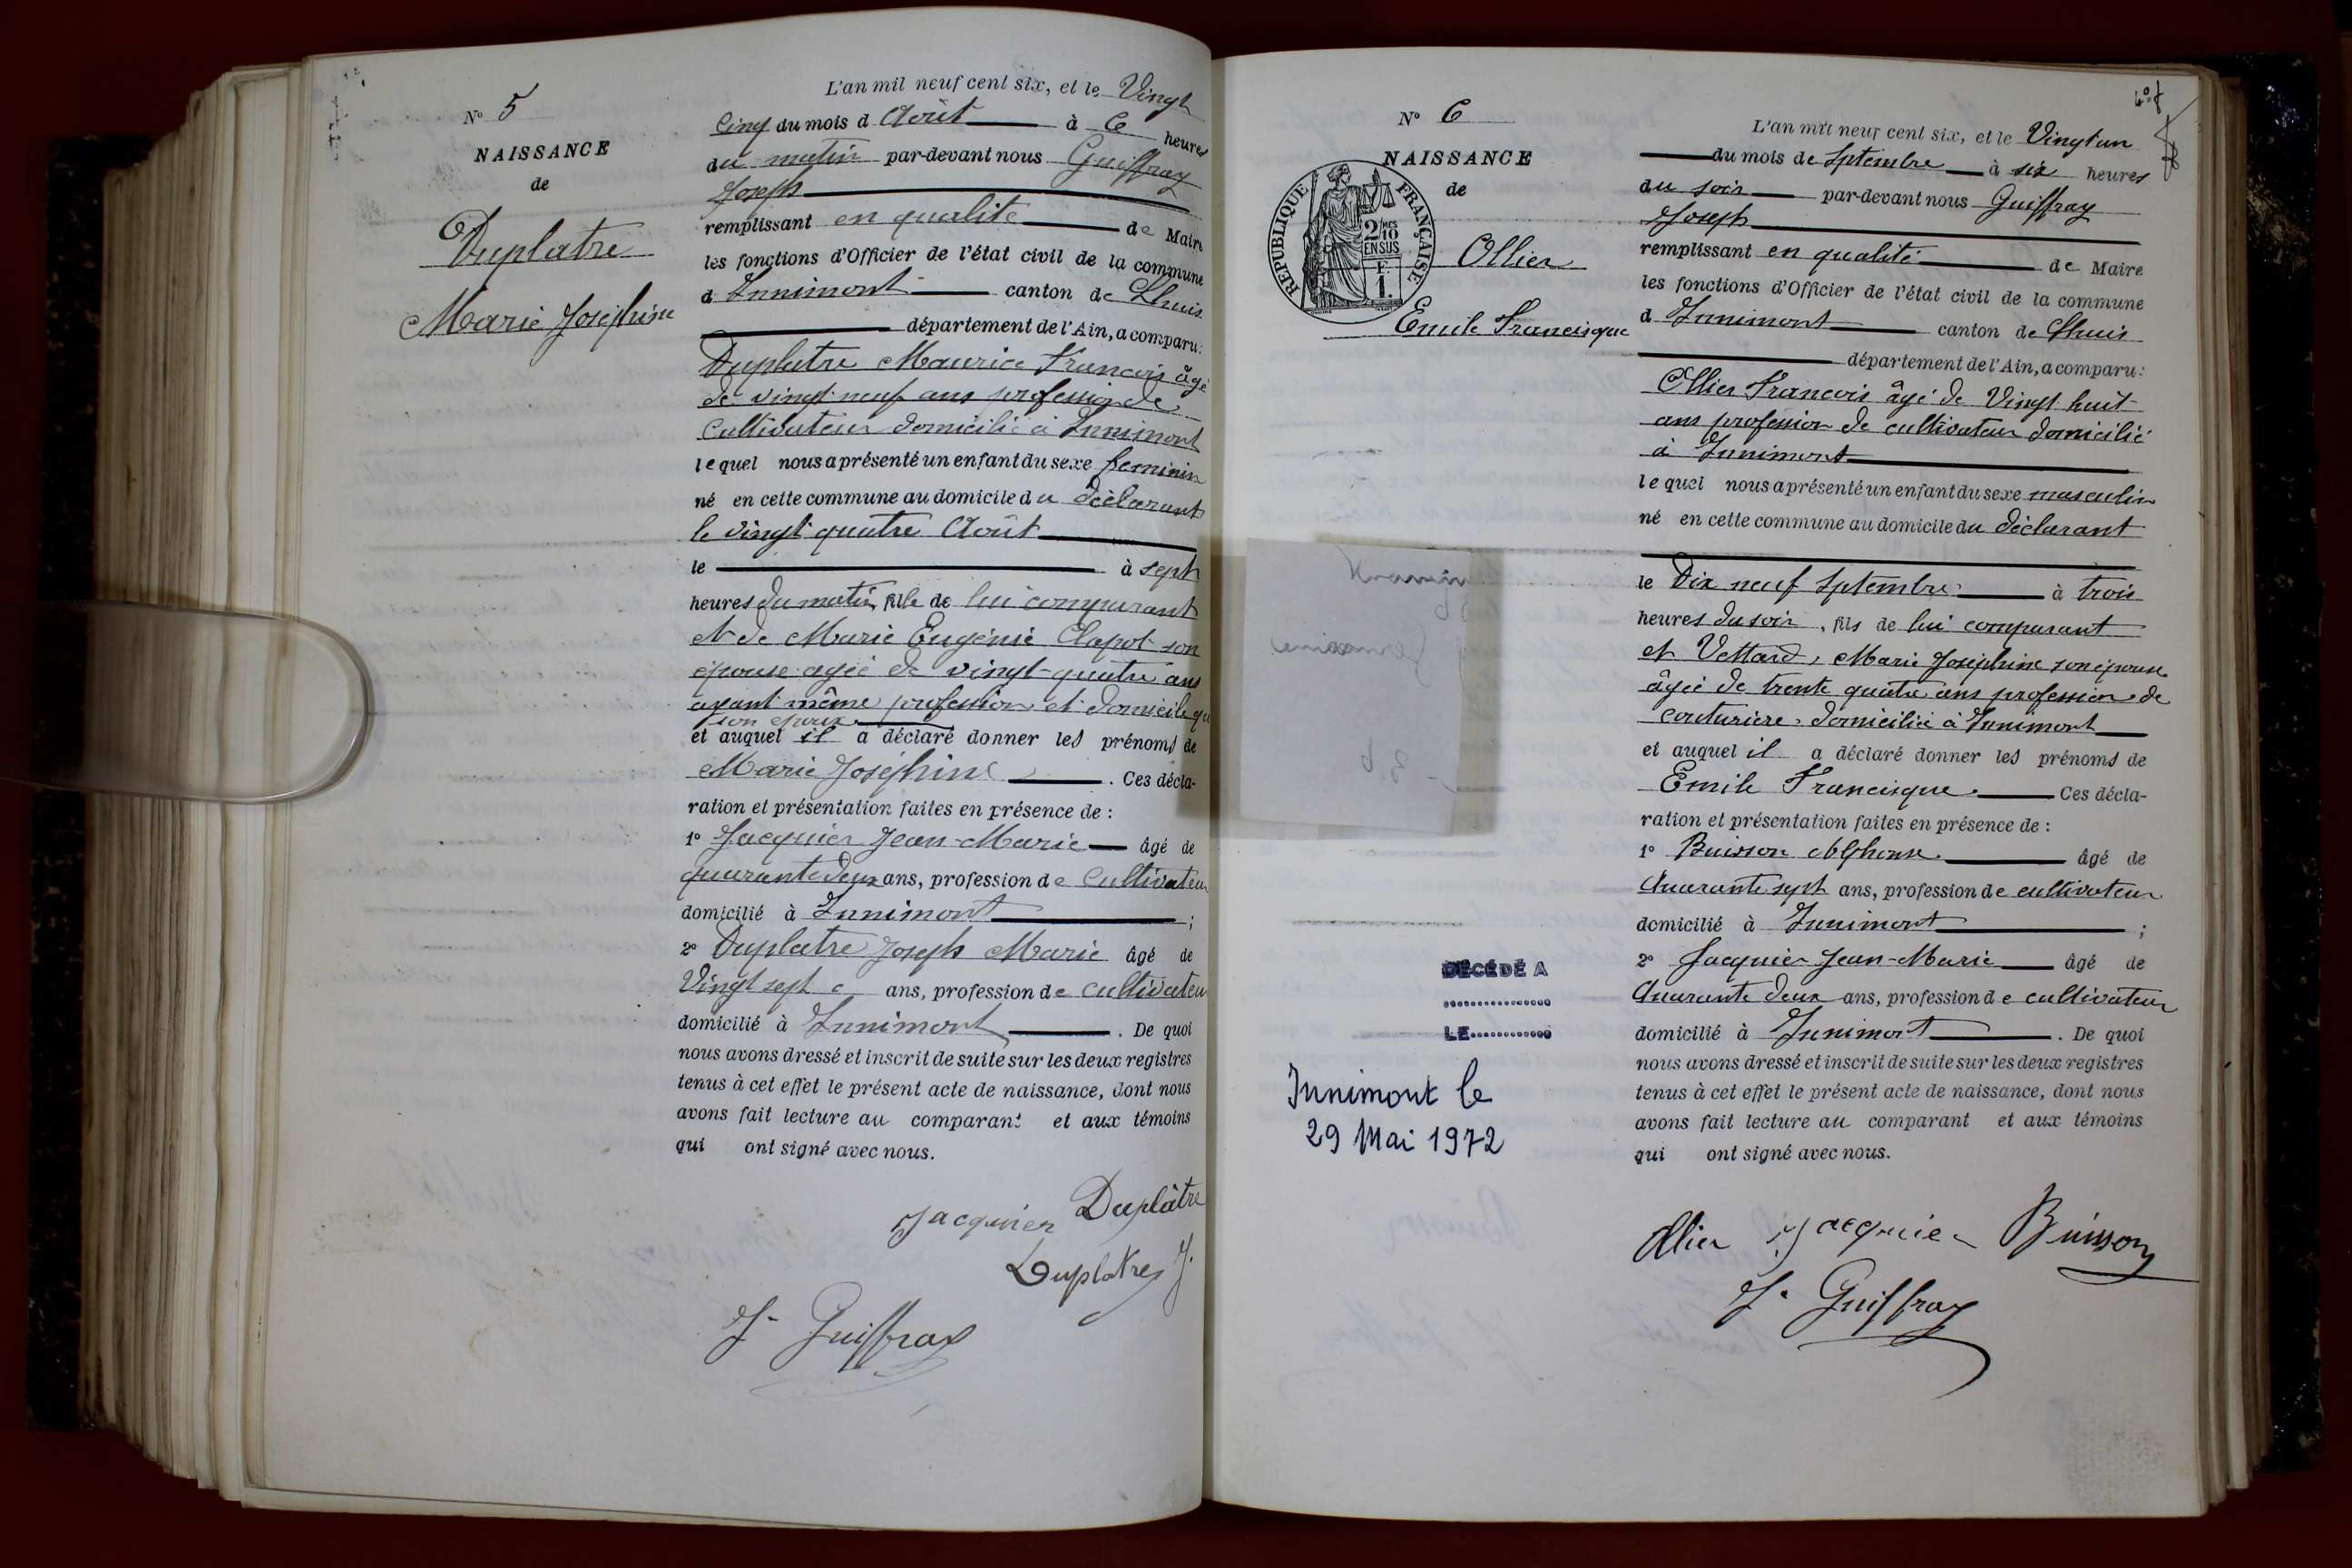 N° 5
NAISSANCE
de
Duplatre
Marie Joséphine
L'an mil neuf cent six, et le Vingt
Cinq du mois d Août à 6 heures
du matin par-devant nous Guiffray
Joseph
remplissant en qualité de Maire
les fonctions d'Officier de l'état civil de la commune
d Innimont canton de Lhuis
département de l'Ain, a comparu:
Duplatre Maurice Francois âgé
de vingt neuf ans profession de
Cultivateur domicilié à Innimont
lequel nous a présenté un enfant du sexe feminin
né en cette commune au domicile du déclarant
le vingt quatre Août
le à sept
heures du matin, fille de lui comparant
et de Marie Eugénie Clapot son
épouse agée de vingt-quatre ans
ayant même profession et domicile que
son epoux
et auquel il a déclaré donner les prénoms de
Marie Joséphine. Ces décla-
ration et présentation faites en présence de :
1° Jacquier Jean-Marie âgé de
quarante deux ans, profession de Cultivateur
domicilié à Innimont ;
2° Duplatre Joseph Marie âgé de
Vingt sept ans, profession de cultivateur
domicilié à Innimont. De quoi
nous avons dressé et inscrit de suite sur les deux registres
tenus à cet effet le présent acte de naissance, dont nous
avons fait lecture au comparant et aux témoins
qui ont signé avec nous.
Jacquier Duplâtre
Duplatre J.
J. Guiffray
N° 6
NAISSANCE
de
RÉPUBLIQUE FRANÇAISE
2/10
EN SUS
F.
1.
Ollier
Emile Francisque
DÉCÉDÉ A
LE
Innimont le
29 Mai 1972
L'an mil neuf cent six, et le Vingt un
du mois de Sptembre à six heures
du soir par-devant nous Guiffray
Joseph
remplissant en qualité de Maire
les fonctions d'Officier de l'état civil de la commune
d Innimont canton de Lhuis
département de l'Ain, a comparu:
Ollier Francois âgé de Vingt huit
ans profession de cultivateur domicilié
à Innimont
lequel nous a présenté un enfant du sexe masculin
né en cette commune au domicile du déclarant
le Dix neuf Sptembre à trois
heures du soir, fils de lui comparant
et Vettard, Marie Joséphine son épouse
âgée de trente quatre ans profession de
couturiere domiciliée à Innimont
et auquel il a déclaré donner les prénoms de
Emile Francisque. Ces décla-
ration et présentation faites en présence de :
1° Buisson Alphonse âgé de
Quarante sept ans, profession de cultivateur
domicilié à Innimont ;
2° Jacquier Jean-Marie âgé de
Quarante deux ans, profession de cultivateur
domicilié à Innimont. De quoi
nous avons dressé et inscrit de suite sur les deux registres
tenus à cet effet le présent acte de naissance, dont nous
avons fait lecture au comparant et aux témoins
qui ont signé avec nous.
Ollier Jacquier Buisson
J. Guiffray